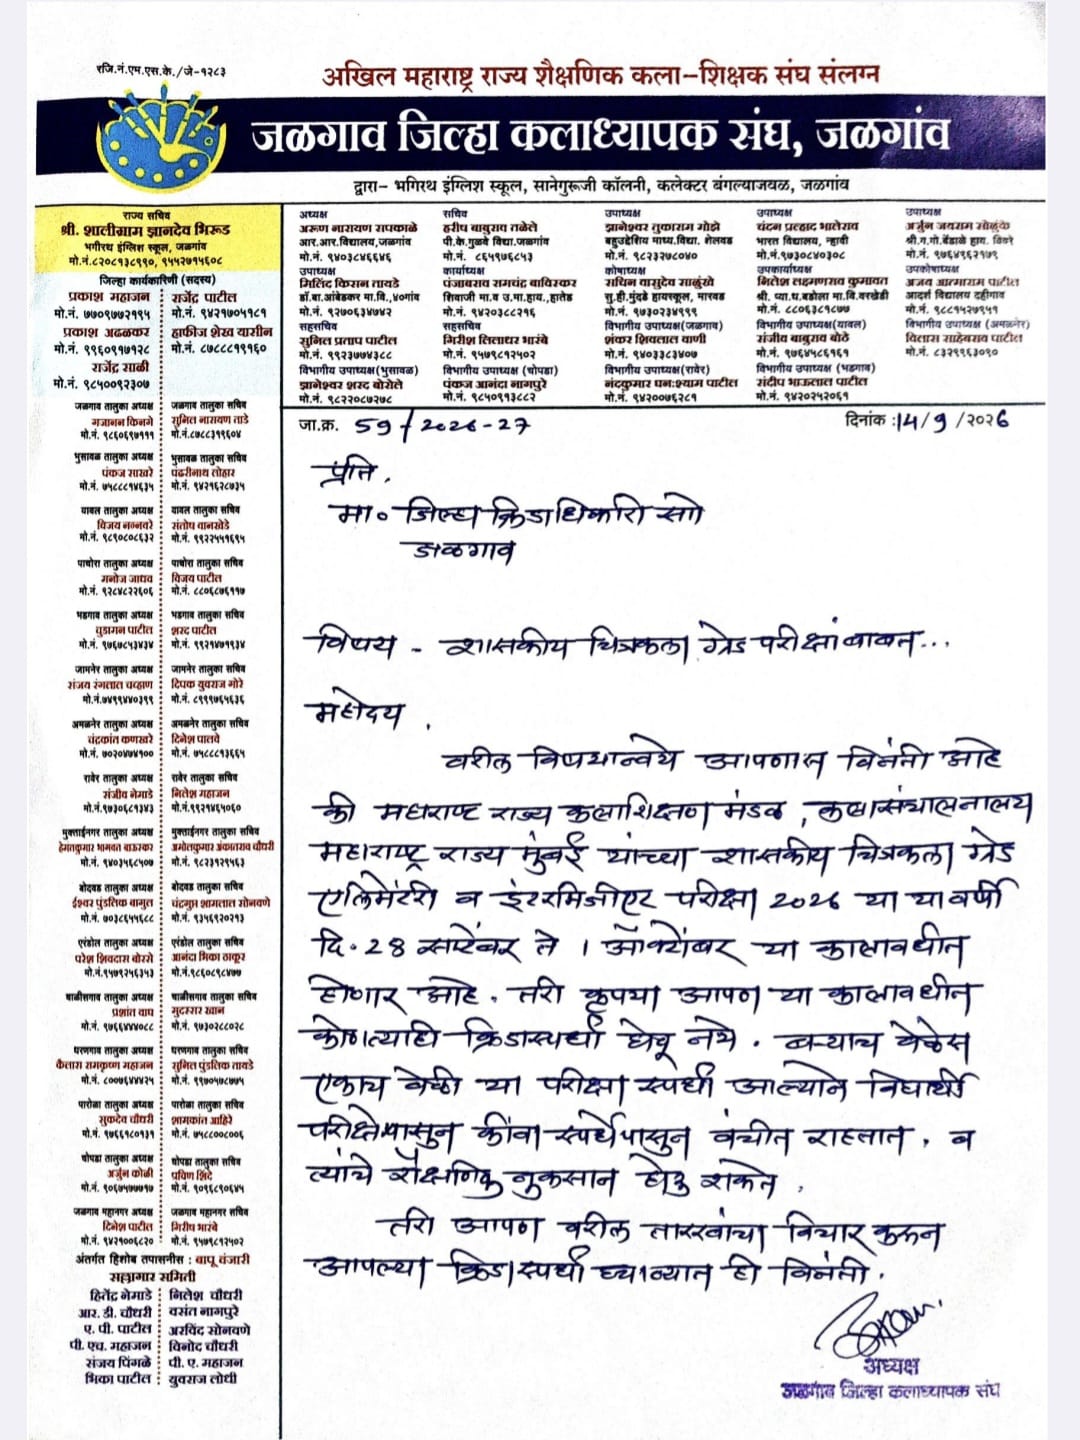 रजि.नं.एम.एस.के./जे-१२८३
अखिल महाराष्ट्र राज्य शैक्षणिक कला-शिक्षक संघ संलग्न
जळगाव जिल्हा कलाध्यापक संघ, जळगांव
द्वारा- भगिरथ इंग्लिश स्कूल, सानेगुरूजी कॉलनी, कलेक्टर बंगल्याजवळ, जळगांव
राज्य सचिव
श्री. शालीग्राम ज्ञानदेव भिरूड
भगीरथ इंग्लिश स्कूल, जळगांव
मो.नं.८२०८१३८९९०, ९५५२७१५६०८
जिल्हा कार्यकारिणी (सदस्य)
प्रकाश महाजन राजेंद्र पाटील
मो.नं. ७७०९७७२१९५ मो.नं. ९४२१७०५१८१
प्रकाश अढळकर हाफीज शेख यासीन
मो.नं. ९९६०९१७१२८ मो.नं. ८७८८८१९१६०
राजेंद्र साळी
मो.नं. ९८५००९२३०७
अध्यक्ष
अरूण नारायण सपकाळे
आर.आर.विद्यालय,जळगांव
मो.नं. ९४०३८४६६४६
उपाध्यक्ष
मिलिंद किसन तायडे
डॉ.बा.आंबेडकर मा.वि.,४०गांव
मो.नं. ९२७०६३४७४२
सहसचिव
सुनिल प्रताप पाटील
मो.नं. ९९२३७७४३८८
विभागीय उपाध्यक्ष(भुसावळ)
ज्ञानेश्वर शरद बोरोले
मो.नं. ९८२२०८७२७८
सचिव
हरीष बाबुराव तळेले
पी.के.गुळवे विद्या.जळगांव
मो.नं. ८६५९७६८५४३
कार्याध्यक्ष
पंजाबराव रामचंद्र बाविस्कर
शिवाजी मा.व उ.मा.हाय.,हातेड
मो.नं. ९४२०३८८२१६
सहसचिव
गिरीश लिलाधर भारंबे
मो.नं. ९५७९८१२५०२
विभागीय उपाध्यक्ष (चोपडा)
पंकज आनंदा नागपुरे
मो.नं. ९८५०९१३८८२
उपाध्यक्ष
ज्ञानेश्वर तुकाराम गोझे
बहुउद्देशिय माध्य.विद्या. शेलवड
मो.नं. ९८२३३२७८०४०
कोषाध्यक्ष
सचिन वासुदेव साळुंखे
सु.ही.मुंदडे हायस्कूल, मारवड
मो.नं. ९७३०२३४९९९
विभागीय उपाध्यक्ष(जळगाव)
शंकर शिवलाल वाणी
मो.नं. ९४०३३८३४०७
विभागीय उपाध्यक्ष(रावेर)
नंदकुमार घनःश्याम पाटील
मो.नं. ९४२००७६२८१
उपाध्यक्ष
चंदन प्रल्हाद भालेराव
भारत विद्यालय, न्हावी
मो.नं.९७३०८४०३०८
उपकार्याध्यक्ष
निलेश लक्ष्मणराव कुमावत
मो.नं. ८८०६३८१८७७
विभागीय उपाध्यक्ष(यावल)
संजीव बाबुराव बोठे
मो.नं. ९७६४५८६१६१
विभागीय उपाध्यक्ष (भडगाव)
संदीप भाऊलाल पाटील
मो.नं. ९४२०२५२०६१
उपाध्यक्ष
अर्जुन जयराम सोळुंके
मो.नं. ९७६४९६२१७९
उपकोषाध्यक्ष
अजय आत्माराम पाटील
आदर्श विद्यालय दहीगाव
मो.नं. ९८८१५२७९५१
विभागीय उपाध्यक्ष (अमळनेर)
विलास साहेबराव पाटील
मो.नं. ८३२९९६३०९०
जळगाव तालुका अध्यक्ष जळगाव तालुका सचिव
गजानन किनगे सुनिल नारायण ताडे
मो.नं. ९८६०६९७१११ मो.नं.८७८८३१९६०४
भुसावळ तालुका अध्यक्ष भुसावळ तालुका सचिव
पंकज साखरे पंढरीनाथ लोहार
मो.नं. ७५८८८१४६३५ मो.नं. ९४२१६२८७३५
यावल तालुका अध्यक्ष यावल तालुका सचिव
विजय नन्नवरे संतोष वानखेडे
मो.नं. ९८९०८०८६३२ मो.नं. ९९२२५५१६९५
पाचोरा तालुका अध्यक्ष पाचोरा तालुका सचिव
मनोज जाधव विजय पाटील
मो.नं. ९२८४८२२६०६ मो.नं. ८८०६८७६११७
भडगाव तालुका अध्यक्ष भडगाव तालुका सचिव
चुडामन पाटील शरद पाटील
मो.नं. ९७६७८५३४३४ मो.नं. ९९२१४७१९३४
जामनेर तालुका अध्यक्ष जामनेर तालुका सचिव
संजय रंगलाल चव्हाण दिपक युवराज गोरे
मो.नं.७४९९४४०३९९ मो.नं. ८९९९७६५६३६
अमळनेर तालुका अध्यक्ष अमळनेर तालुका सचिव
चंद्रकांत कणखरे दिनेश पालवे
मो.नं. ७०२०४७४१०० मो.नं. ७५८८८१३६६५
रावेर तालुका अध्यक्ष रावेर तालुका सचिव
संजीव नेमाडे नितेश महाजन
मो.नं.९७३०६८१३४३ मो.नं.९९२१४६५०६०
मुक्ताईनगर तालुका अध्यक्ष मुक्ताईनगर तालुका सचिव
हेमंतकुमार भागवत बाऊस्कर अमोलकुमार अंकातराव चौधरी
मो.नं. ९४०३५६८५०७ मो.नं. ९८२३१२९५६३
बोदवड तालुका अध्यक्ष बोदवड तालुका सचिव
ईश्वर पुंडलिक बागुल चंद्रगुप्त शामलाल सोनवणे
मो.नं. ७०३८६५५६८८ मो.नं. ९३५६९२०२१३
एरंडोल तालुका अध्यक्ष एरंडोल तालुका सचिव
परेश शिवदास बोरसे आनंदा भिका ठाकूर
मो.नं.९५७९२५६३५३ मो.नं.९८६०८९८४७७
चाळीसगाव तालुका अध्यक्ष चाळीसगाव तालुका सचिव
प्रशांत वाघ मुदस्सर खान
मो.नं. ९७६६४४४०८८ मो.नं. ९७३०२८८०२८
धरणगाव तालुका अध्यक्ष धरणगाव तालुका सचिव
कैलास रामकृष्ण महाजन सुनिल पुंडलिक तायडे
मो.नं. ८००७६४४४२५ मो.नं. ९९७०५७८७७५
पारोळा तालुका अध्यक्ष पारोळा तालुका सचिव
सुकदेव चौधरी शामकांत आहिरे
मो.नं. ९७६६९८०१३१ मो.नं. ७५८८००८००६
चोपडा तालुका अध्यक्ष चोपडा तालुका सचिव
अर्जुन कोळी पविण शिंदे
मो.नं. ९०६७५७७७१७ मो.नं. ९०९६८९०६४५
जळगाव महानगर अध्यक्ष जळगाव महानगर सचिव
दिनेश पाटील गिरीष भारंबे
मो.नं. ९४२१००६८२० मो.नं. ९५७९८१२५०२
अंतर्गत हिशोब तपासनीस : बापू बंजारी
सल्लागार समिती
हितेंद्र नेमाडे निलेश चौधरी
आर. डी. चौधरी वसंत नागपुरे
ए. पी. पाटील अरविंद सोनवणे
पी. एच. महाजन विनोद चौधरी
संजय पिंगळे पी. ए. महाजन
भिका पाटील युवराज लोधी
जा.क्र. 59/2026-27 दिनांक :14/9/2026
प्रति,
मा० जिल्हा क्रिडाधिकारी सो
जळगाव
विषय - शासकीय चित्रकला ग्रेड परीक्षांबाबत...
महोदय,
वरील विषयान्वये आपणास विनंती आहे
की महाराष्ट्र राज्य कलाशिक्षण मंडळ, कलासंचालनालय
महाराष्ट्र राज्य मुंबई यांच्या शासकीय चित्रकला ग्रेड
एलिमेंटरी व इंटरमिजीएट परीक्षा 2026 या या वर्षी
दि. 28 सप्टेंबर ते 1 ऑक्टोंबर या कालावधीत
होणार आहे. तरी कृपया आपण या कालावधीत
कोणत्याही क्रिडास्पर्धा घेवू नये. बऱ्याच वेळेस
एकाच वेळी या परीक्षा स्पर्धा आल्याने विद्यार्थी
परीक्षेपासुन कींवा स्पर्धेपासुन वंचीत राहतात, व
त्यांचे शैक्षणिक नुकसान होवु शकते.
तरी आपण वरील तारखांचा विचार करून
आपल्या क्रिडास्पर्धा घ्याव्यात ही विनंती.
अध्यक्ष
जळगाव जिल्हा कलाध्यापक संघ